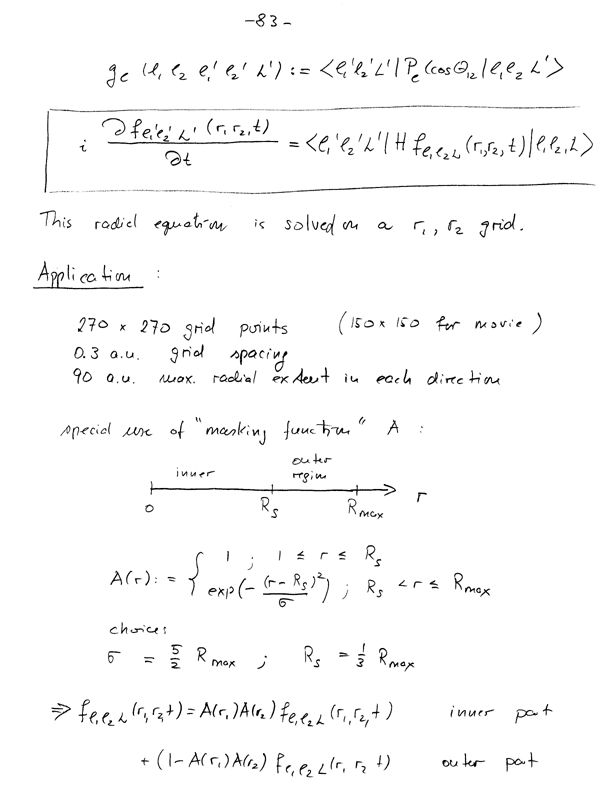 -83-
g_ℓ (ℓ₁ ℓ₂ ℓ₁' ℓ₂' L') := <ℓ₁'ℓ₂'L'| P_ℓ (cosΘ₁₂ |ℓ₁ℓ₂ L'>
i ∂f_{ℓ₁'ℓ₂'L'} (r₁r₂,t) / ∂t = <ℓ₁'ℓ₂'L'| H f_{ℓ₁ℓ₂L} (r₁,r₂,t)|ℓ₁ℓ₂L>
This radial equation is solved on a r₁, r₂ grid.
Application :
270 × 270 grid points (150 × 150 for movie)
0.3 a.u. grid spacing
90 a.u. max. radial extent in each direction
special use of "masking function" A :
inner outer region
0 R_s R_max r
A(r) := { 1 ; 1 ≤ r ≤ R_s
exp(- (r-R_s)²/σ) ; R_s < r ≤ R_max
choice:
σ = 5/2 R_max ; R_s = 1/3 R_max
⇒ f_{ℓ₁ℓ₂L} (r₁r₂t) = A(r₁)A(r₂) f_{ℓ₁ℓ₂L} (r₁,r₂,t) inner part
+ (1-A(r₁)A(r₂) f_{ℓ₁ℓ₂L} (r₁ r₂ t) outer part